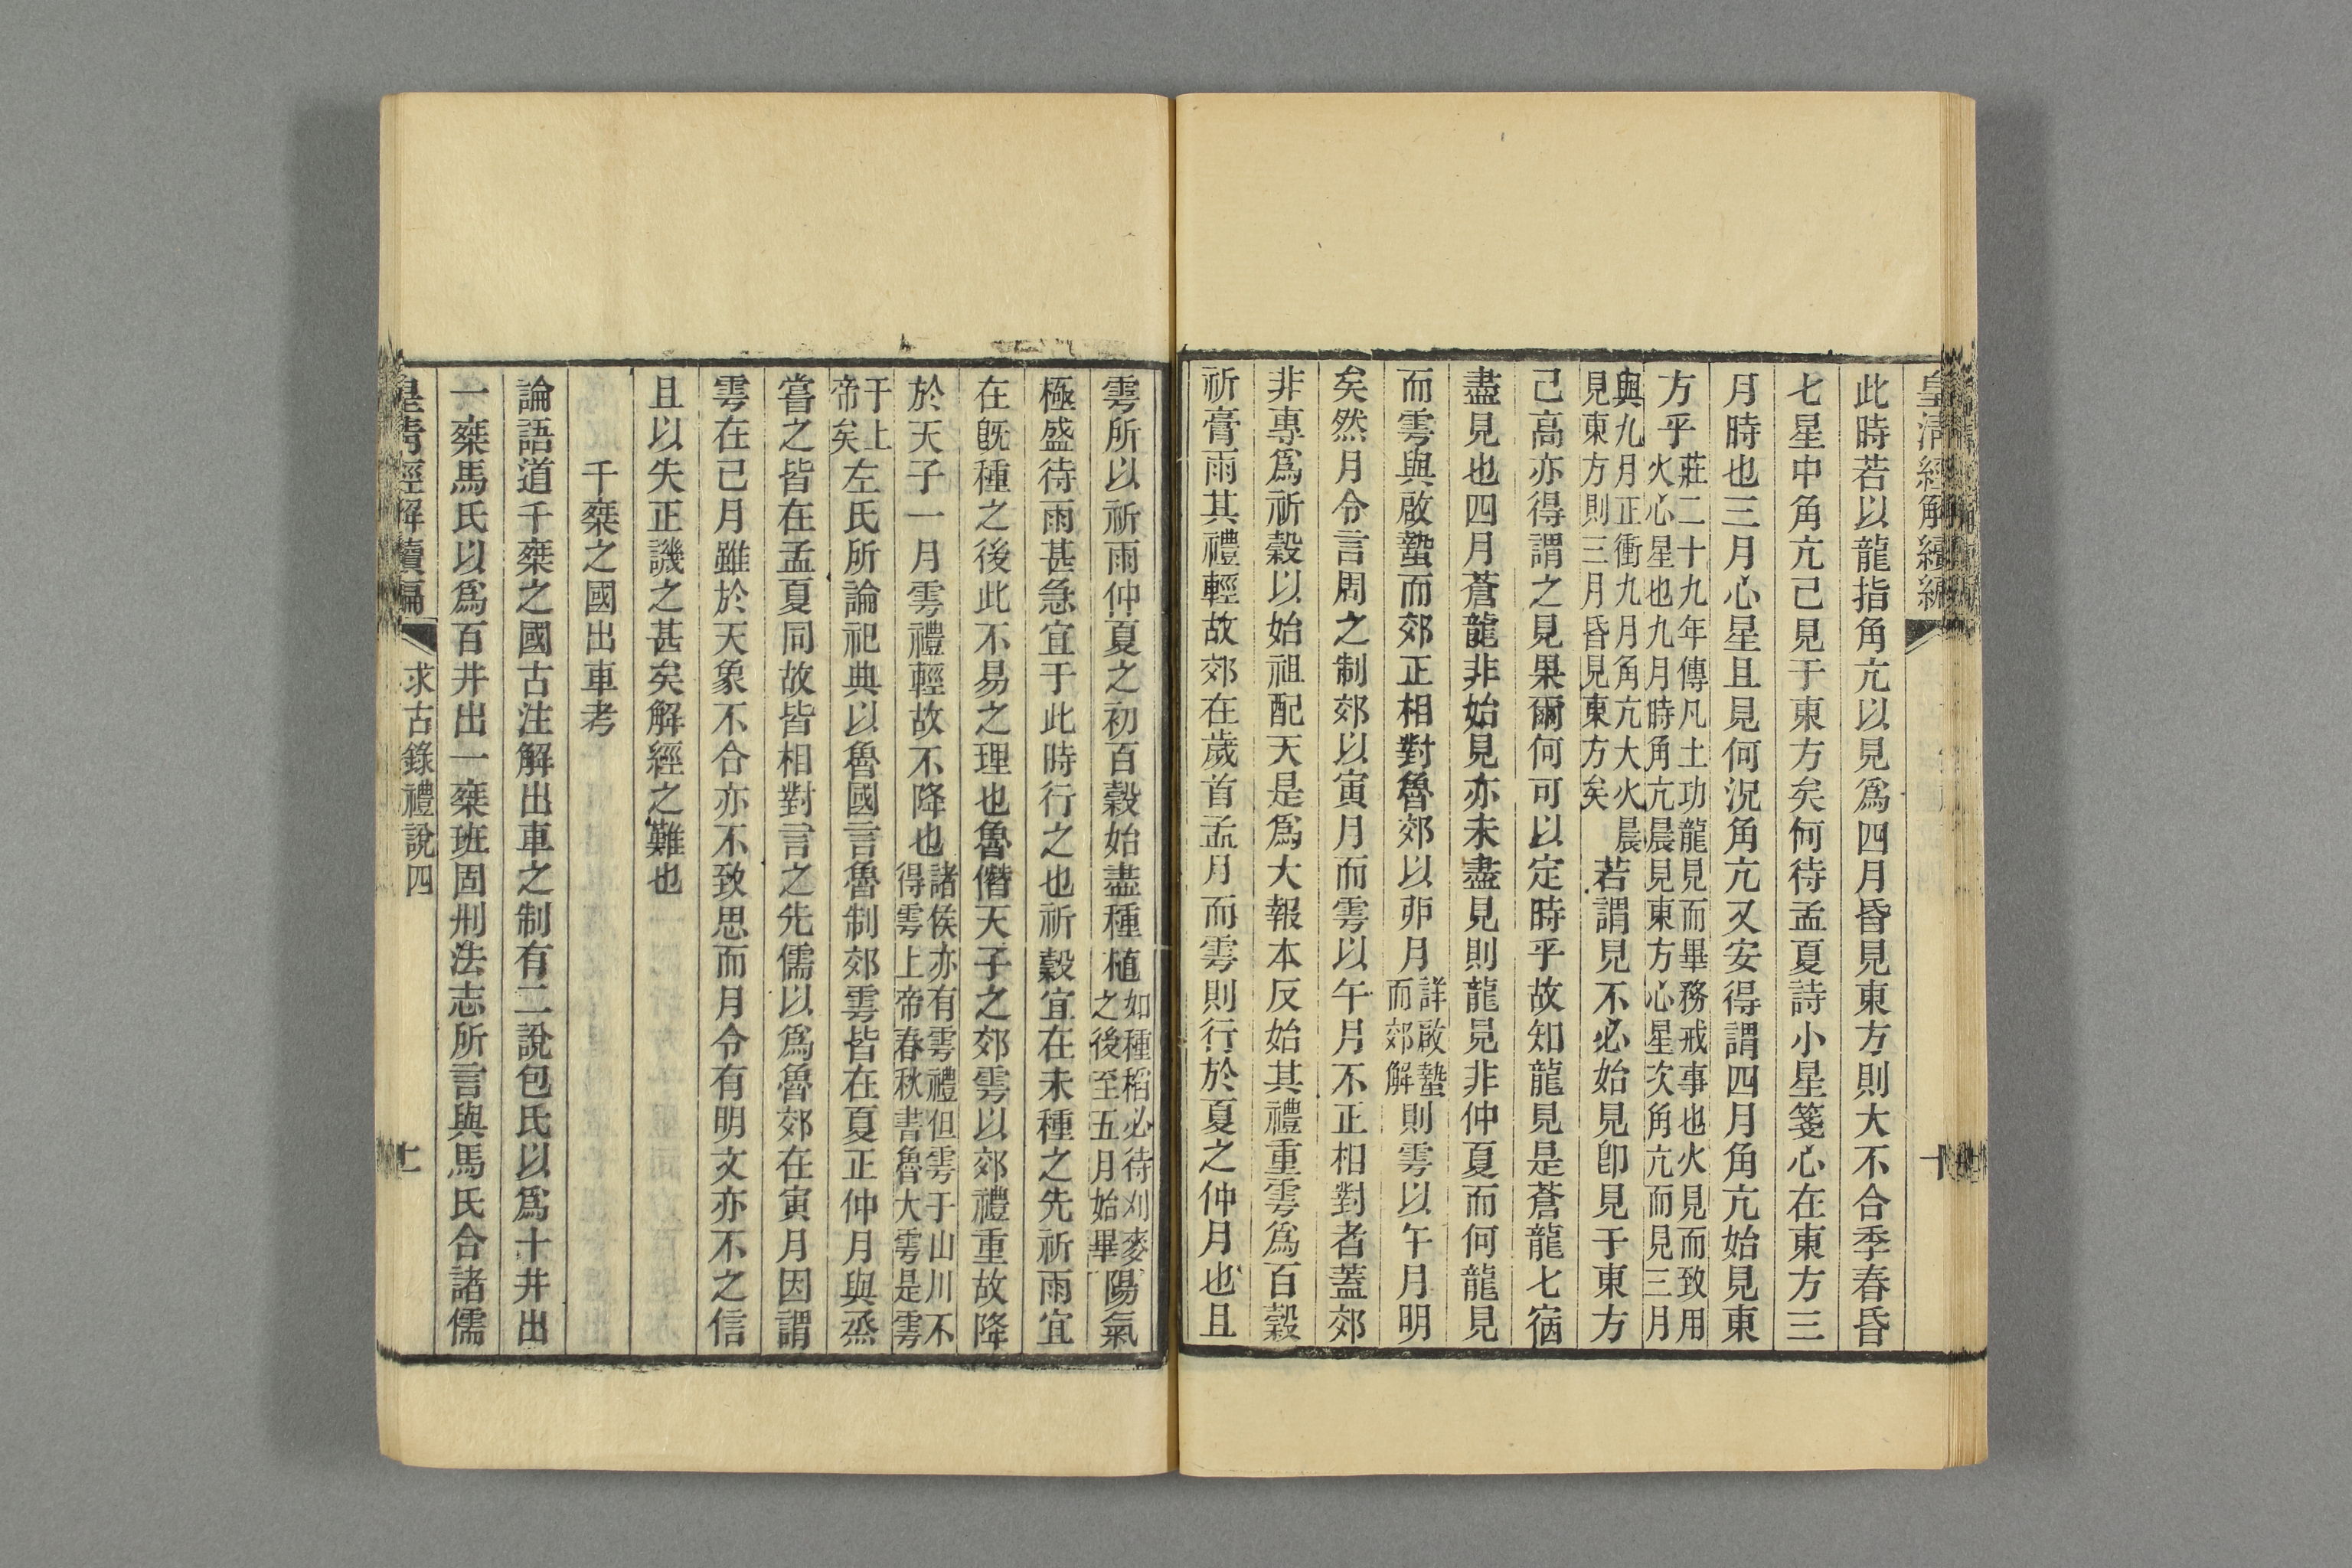 皇清經解續編
十
此時若以龍指角亢以見爲四月昏見東方則大不合季春昏
七星中角亢已見于東方矣何待孟夏詩小星箋心在東方三
月時也三月心星且見何況角亢又安得謂四月角亢始見東
方乎莊二十九年傳凡土功龍見而畢務戒事也火見而致用
火心星也九月時角亢晨見東方心星次角亢而見三月
與九月正衝九月角亢大火晨
見東方則三月昏見東方矣若謂見不必始見卽見于東方
已高亦得謂之見果爾何可以定時乎故知龍見是蒼龍七宿
盡見也四月蒼龍非始見亦未盡見則龍見非仲夏而何龍見
而雩與啟蟄而郊正相對魯郊以卯月詳啟蟄
而郊解則雩以午月明
矣然月令言周之制郊以寅月而雩以午月不正相對者蓋郊
非專爲祈穀以始祖配天是爲大報本反始其禮重雩爲百穀
祈膏雨其禮輕故郊在歲首孟月而雩則行於夏之仲月也且
雩所以祈雨仲夏之初百穀始盡種植如種稻必待刈麥
之後至五月始畢陽氣
極盛待雨甚急宜于此時行之也祈穀宜在未種之先祈雨宜
在旣種之後此不易之理也魯僭天子之郊雩以郊禮重故降
於天子一月雩禮輕故不降也諸侯亦有雩禮但雩于山川不
得雩上帝春秋書魯大雩是雩
于上
帝矣左氏所論祀典以魯國言魯制郊雩皆在夏正仲月與烝
嘗之皆在孟夏同故皆相對言之先儒以爲魯郊在寅月因謂
雩在已月雖於天象不合亦不致思而月令有明文亦不之信
且以失正譏之甚矣解經之難也
千椉之國出車考
論語道千椉之國古注解出車之制有二說包氏以爲十井出
一椉馬氏以爲百井出一椉班固刑法志所言與馬氏合諸儒
皇清經解續編
求古錄禮說四
十一